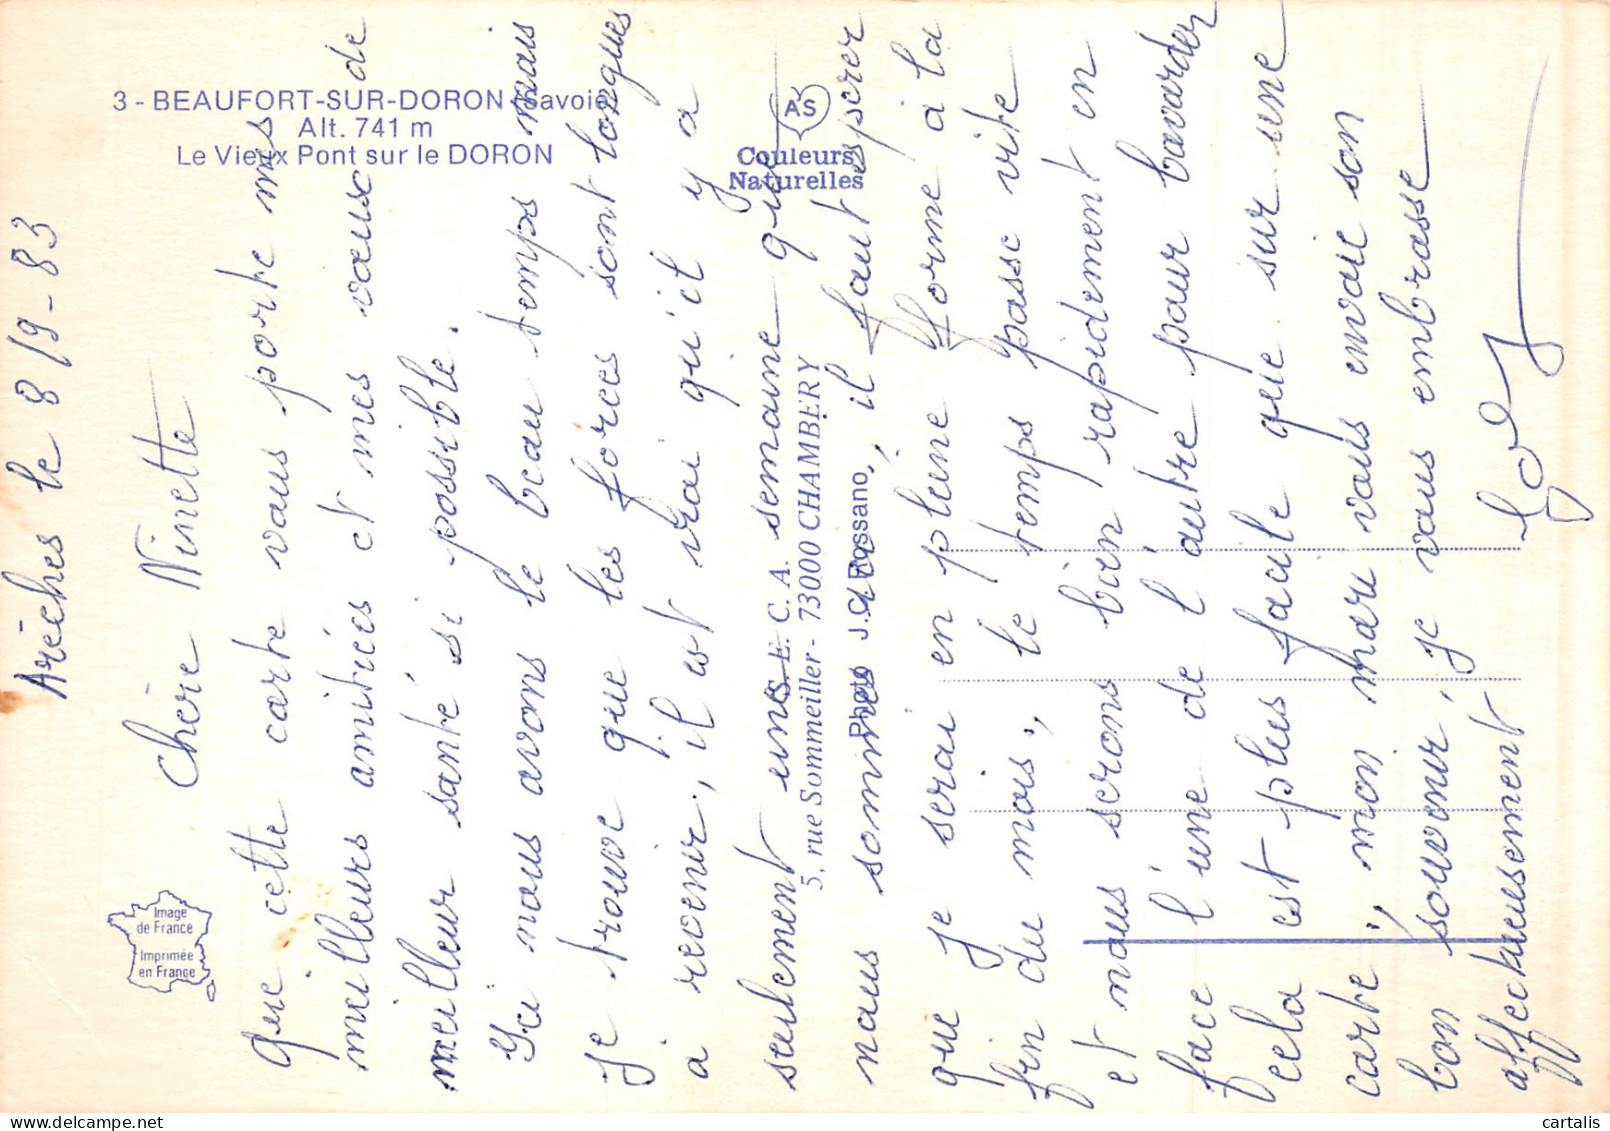 3 - BEAUFORT-SUR-DORON (Savoie)
Alt. 741 m
Le Vieux Pont sur le DORON
AS
Couleurs
Naturelles
Image
de France
Imprimée
en France
E. C. A.
5, rue Sommeiller - 73000 CHAMBERY
Photo J.C. Rossano
Arèches le 8/9-83
Chère Ninette
Que cette carte vous porte mes
meilleurs amitiées et mes vœux de
meilleur santé si possible.
Ici nous avons le beau temps mais
je trouve que les forces sont longues
à revenir, il est vrai qu'il y a
seulement une semaine que
nous sommes ici, il faut esperer
que je serai en pleine forme à la
fin du mois, le temps passe vite
et nous serons bien rapidement en
face l'une de l'autre pour bavarder
cela est plus facile que sur une
carte, mon mari vous envoie son
bon souvenir, je vous embrasse
affectueusement